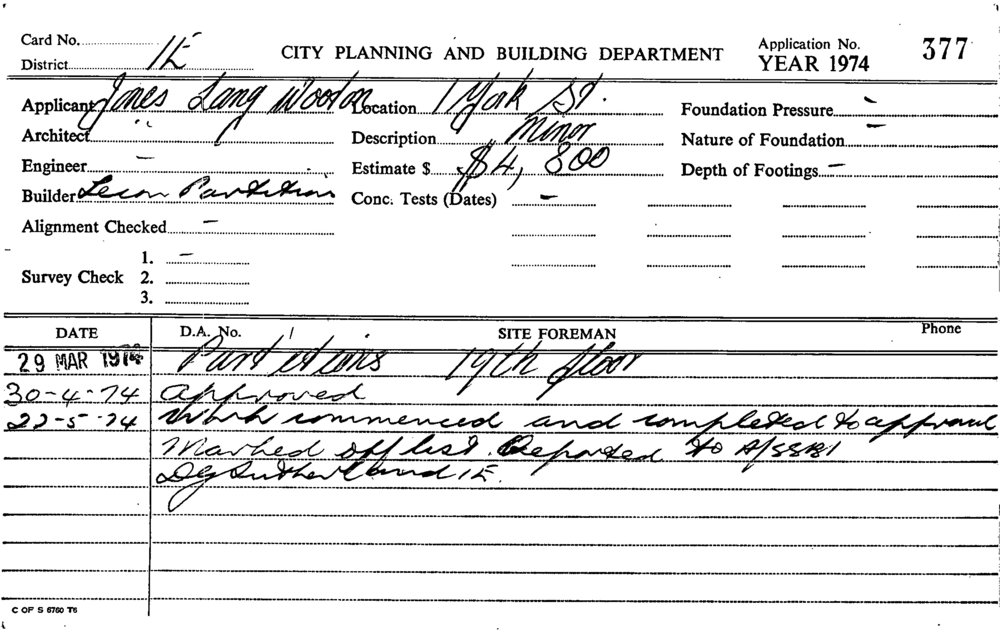 Card No.
District 1E
CITY PLANNING AND BUILDING DEPARTMENT
Application No. 377
YEAR 1974
Applicant Jones Lang Wooton
Location 1 York St.
Foundation Pressure –
Architect "
Description Minor
Nature of Foundation –
Engineer –
Estimate $ $4,800
Depth of Footings –
Builder Lecon Partition
Conc. Tests (Dates) –
Alignment Checked –
Survey Check 1. –
2.
3.
DATE D.A. No. / SITE FOREMAN Phone
29 MAR 1974 Partitions 19th floor
30-4-74 Approved
22-5-74 Work commenced and completed to approval
Marked off list. Reported to A/SSBI
DG Sutherland 1E.
C OF S 6760 T6